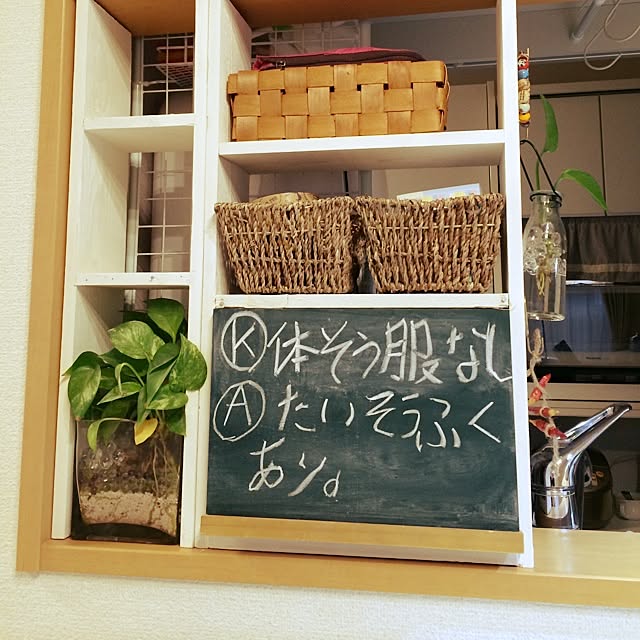 Ⓚ体そう服なし
Ⓐたいそうふく
あり。